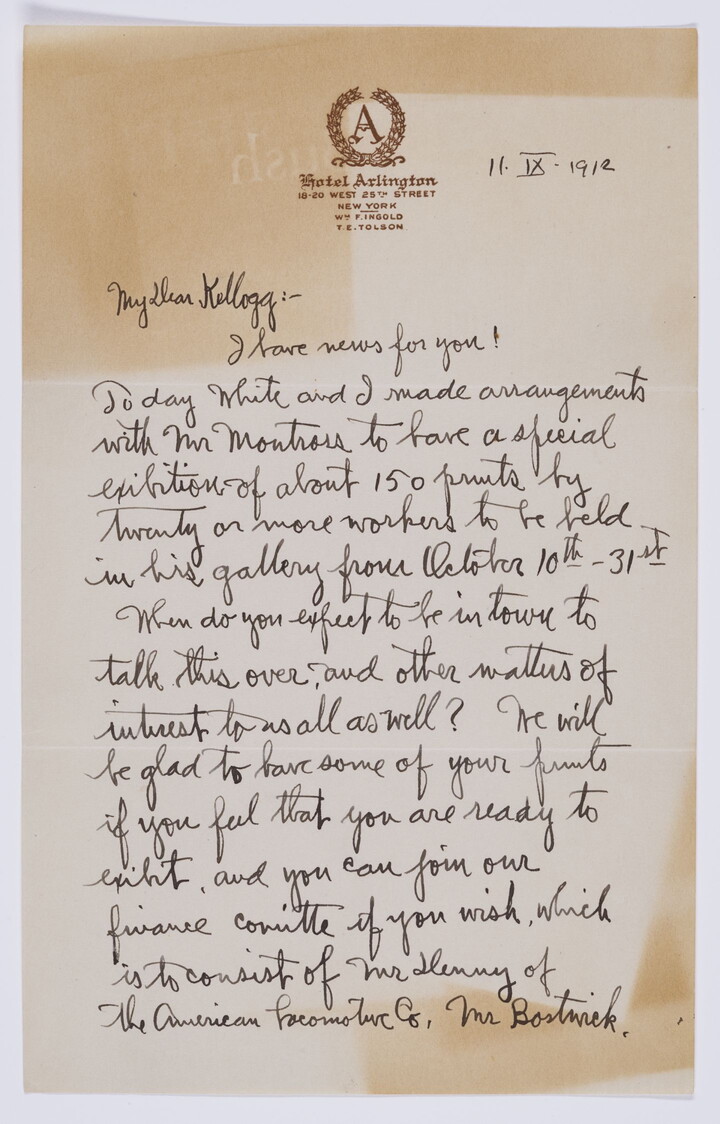 A
Hotel Arlington
18-20 WEST 25TH STREET
NEW YORK
WM F. INGOLD
T. E. TOLSON
11. IX - 1912
My Dear Kellogg:-
I have news for you!
To day White and I made arrangements
with Mr Montross to have a special
exibition of about 150 prints by
twenty or more workers to be held
in his gallery from October 10th - 31st
When do you expect to be in town to
talk this over, and other matters of
interest to us all as well? We will
be glad to have some of your prints
if you feel that you are ready to
exibit, and you can join our
finance comitte if you wish, which
is to consist of Mr of
the American Locomotive Co, Mr Bostwick.